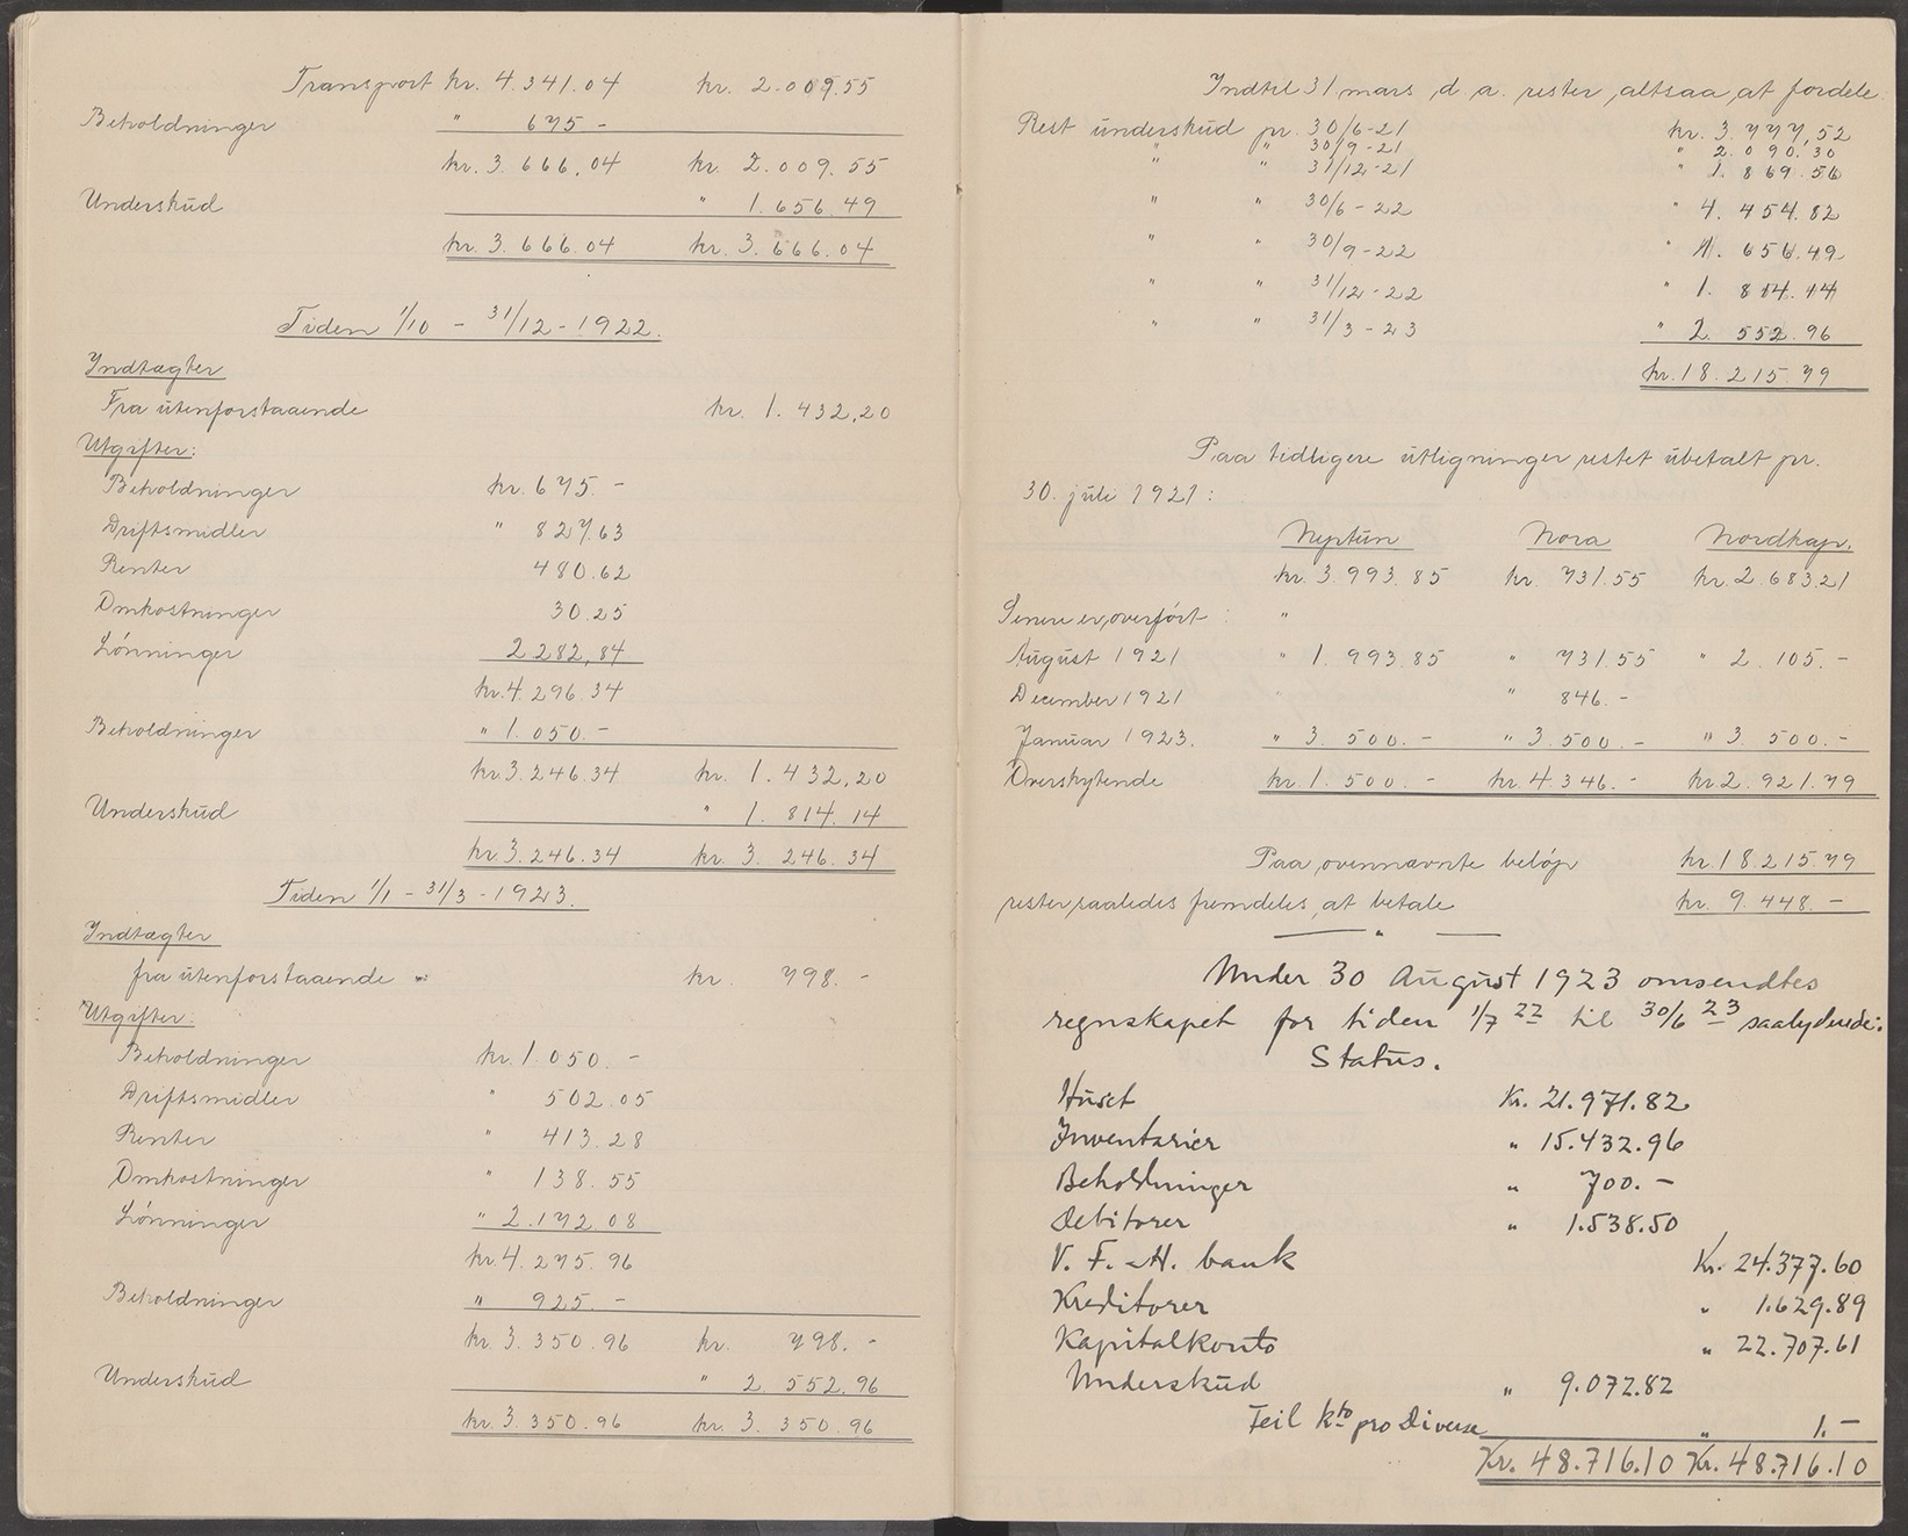 Transport kr. 4.341.04 kr. 2.009.55
Beholdninger " 675 -
kr. 3.666.04 kr. 2.009.55
Underskud " 1.656.49
kr. 3.666.04 kr. 3.666.04
Tiden 1/10 - 31/12 - 1922.
Indtægter
Fra utenforstaaende kr. 1.432,20
Utgifter:
Beholdninger kr. 675. -
Driftsmidler " 827.63
Renter 480.62
Omkostninger 30.25
Lönninger 2282,84
kr. 4.296.34
Beholdninger " 1.050. -
kr. 3.246.34 kr. 1.432,20
Underskud " 1.814.14
kr. 3.246.34 kr. 3.246.34
Tiden 1/1 - 31/3 - 1923.
Indtægter
fra utenforstaaende kr. 798. -
Utgifter:
Beholdninger kr. 1.050. -
Driftsmidler " 502.05
Renter " 413.28
Omkostninger " 138.55
Lönninger " 2.172.08
kr. 4.275.96
Beholdninger " 925. -
kr. 3.350.96 kr. 798. -
Underskud " 2.552.96
kr. 3.350.96 kr. 3.350.96
Indtil 31 mars d. a. rester altsaa at fordele:
Rest underskud pr. 30/6-21 kr. 3.777,52
" " 30/9-21 " 2.090.30
" " 31/12-21 " 1.869.56
" " 30/6-22 " 4.454.82
" " 30/9-22 " 1.656.49
" " 31/12-22 " 1.814.14
" " 31/3-23 " 2.552.96
kr. 18.215.79
Paa tidligere utligninger restet ubetalt pr.
30. juli 1921:
Neptun Nora Nordkap.
kr. 3.993.85 kr. 731.55 kr. 2.683.21
Senere er overført: "
August 1921 " 1.993.85 " 731.55 " 2.105. -
December 1921 " " 846. -
Januar 1923. " 3.500. - " 3.500. - " 3.500. -
Overskytende kr. 1.500. - kr. 4.346. - kr. 2.921.79
Paa ovennævnte beløp kr. 18.215.79
rester saaledes fremdeles at betale kr. 9.448. -
"
Under 30 August 1923 omsendtes
regnskapet for tiden 1/7 22 til 30/6 23 saalydende:
Status.
Huset Kr. 21.971.82
Inventarier " 15.432.96
Beholdninger " 700. -
Debitorer " 1.538.50
V. F. H. bank Kr. 24.377.60
Kreditorer " 1.629.89
Kapitalkonto " 22.707.61
Underskud " 9.072.82
Feil kto pro Diverse " 1. -
Kr. 48.716.10 Kr. 48.716.10